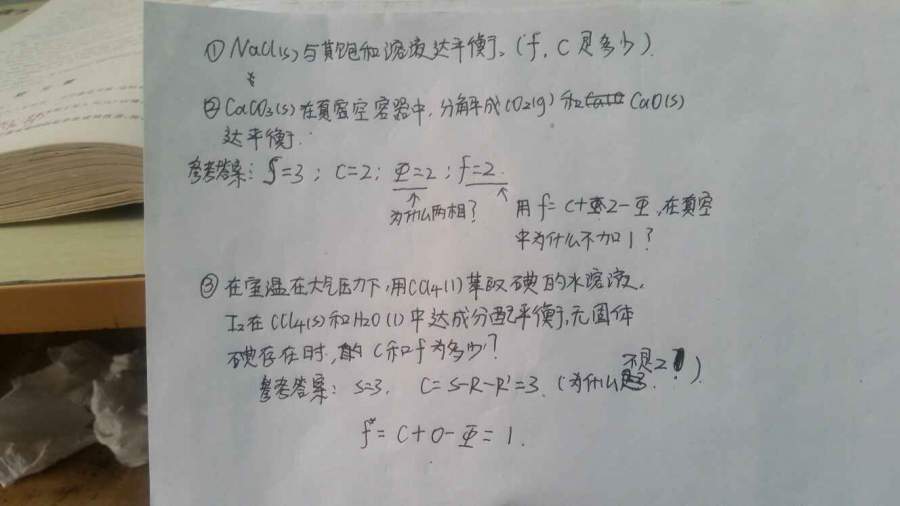 ① NaCl(s)与其饱和溶液达平衡。(f、C是多少).
② CaCO3(s)在真密空容器中,分解成CO2(g)和 CaO(s)
达平衡.
参考答案: S=3; C=2; Φ=2; f=2.
为什么两相?
用 f=C+2-Φ,在真空
中为什么不加1?
③ 在室温在大气压力下,用CCl4(l)萃取碘的水溶液,
I2在CCl4(s)和H2O(l)中达成分配平衡,无固体
碘存在时, 的C和f为多少?
参考答案: S=3, C=S-R-R'=3. (为什么 不是2?).
f*=C+0-Φ=1.